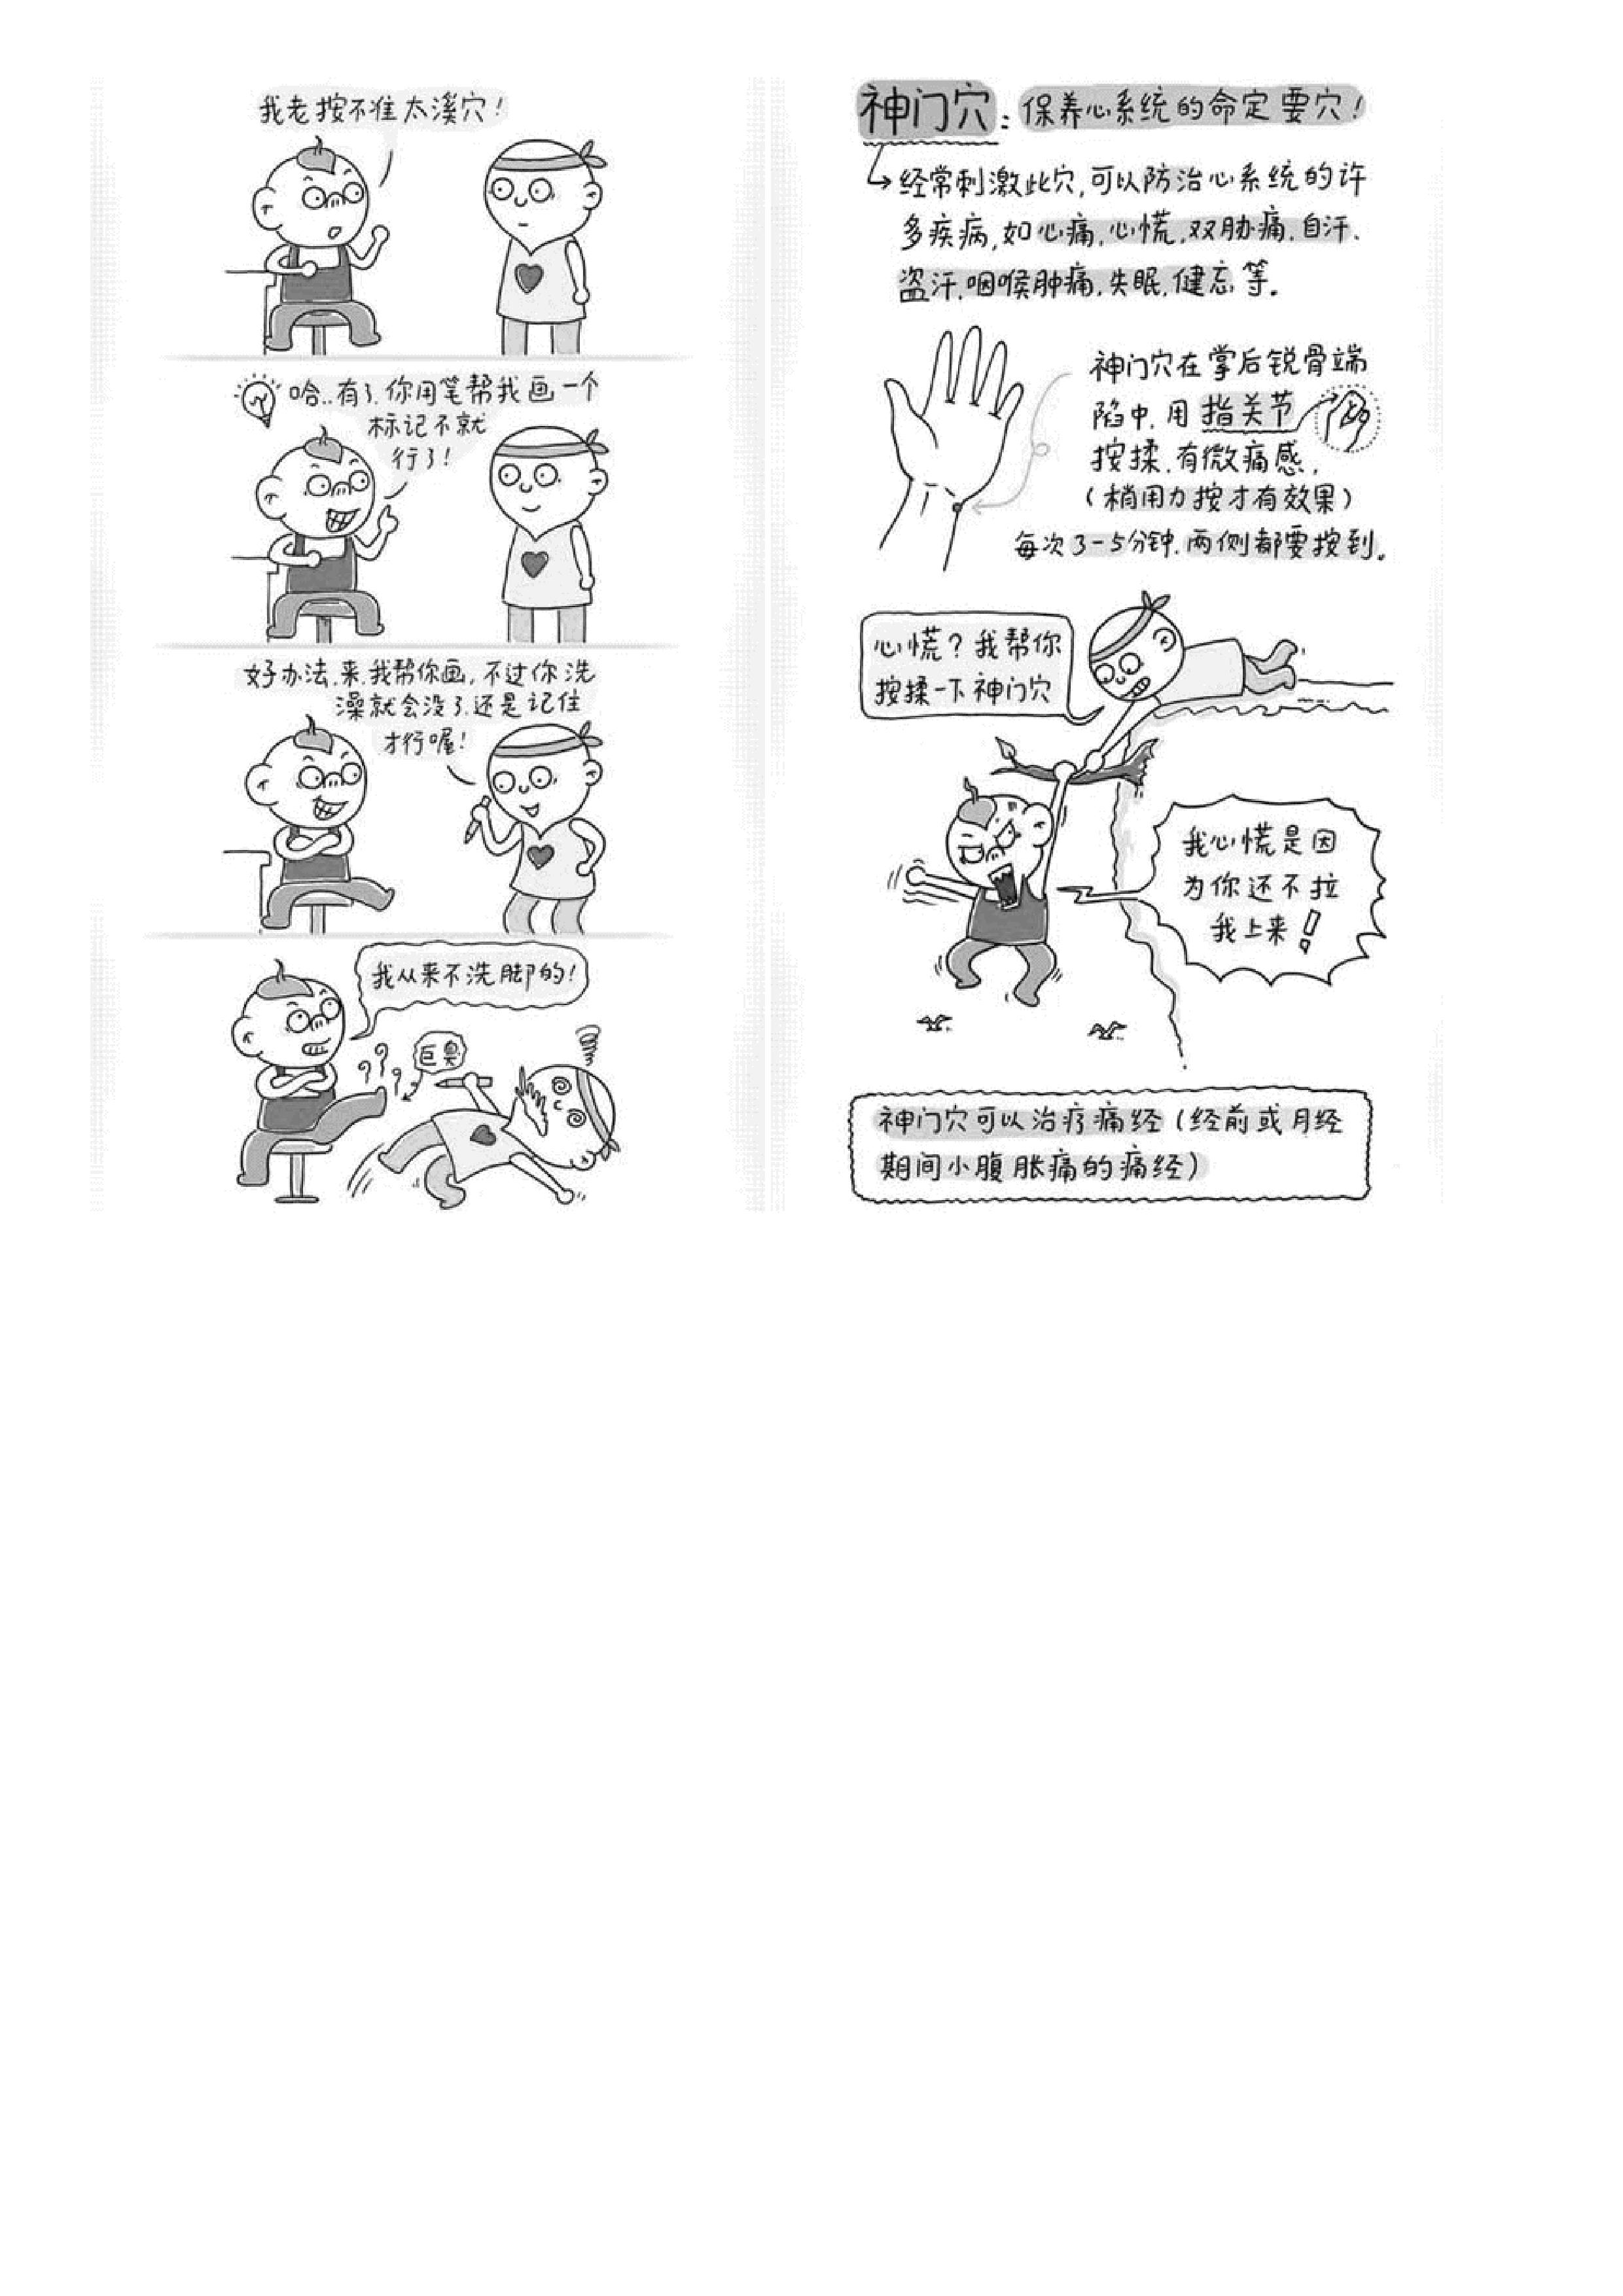 我老按不准太溪穴！
哈..有了.你用笔帮我画一个
标记不就
行了！
好办法.来.我帮你画,不过你洗
澡就会没了.还是记住
才行喔！
我从来不洗脚的！
巨臭
神门穴：保养心系统的命定要穴！
经常刺激此穴,可以防治心系统的许
多疾病,如心痛,心慌,双胁痛.自汗.
盗汗.咽喉肿痛.失眠.健忘等.
神门穴在掌后锐骨端
陷中.用指关节
按揉.有微痛感.
（稍用力按才有效果）
每次3-5分钟.两侧都要按到.
心慌？我帮你
按揉一下神门穴
我心慌是因
为你还不拉
我上来！
神门穴可以治疗痛经（经前或月经
期间小腹胀痛的痛经）